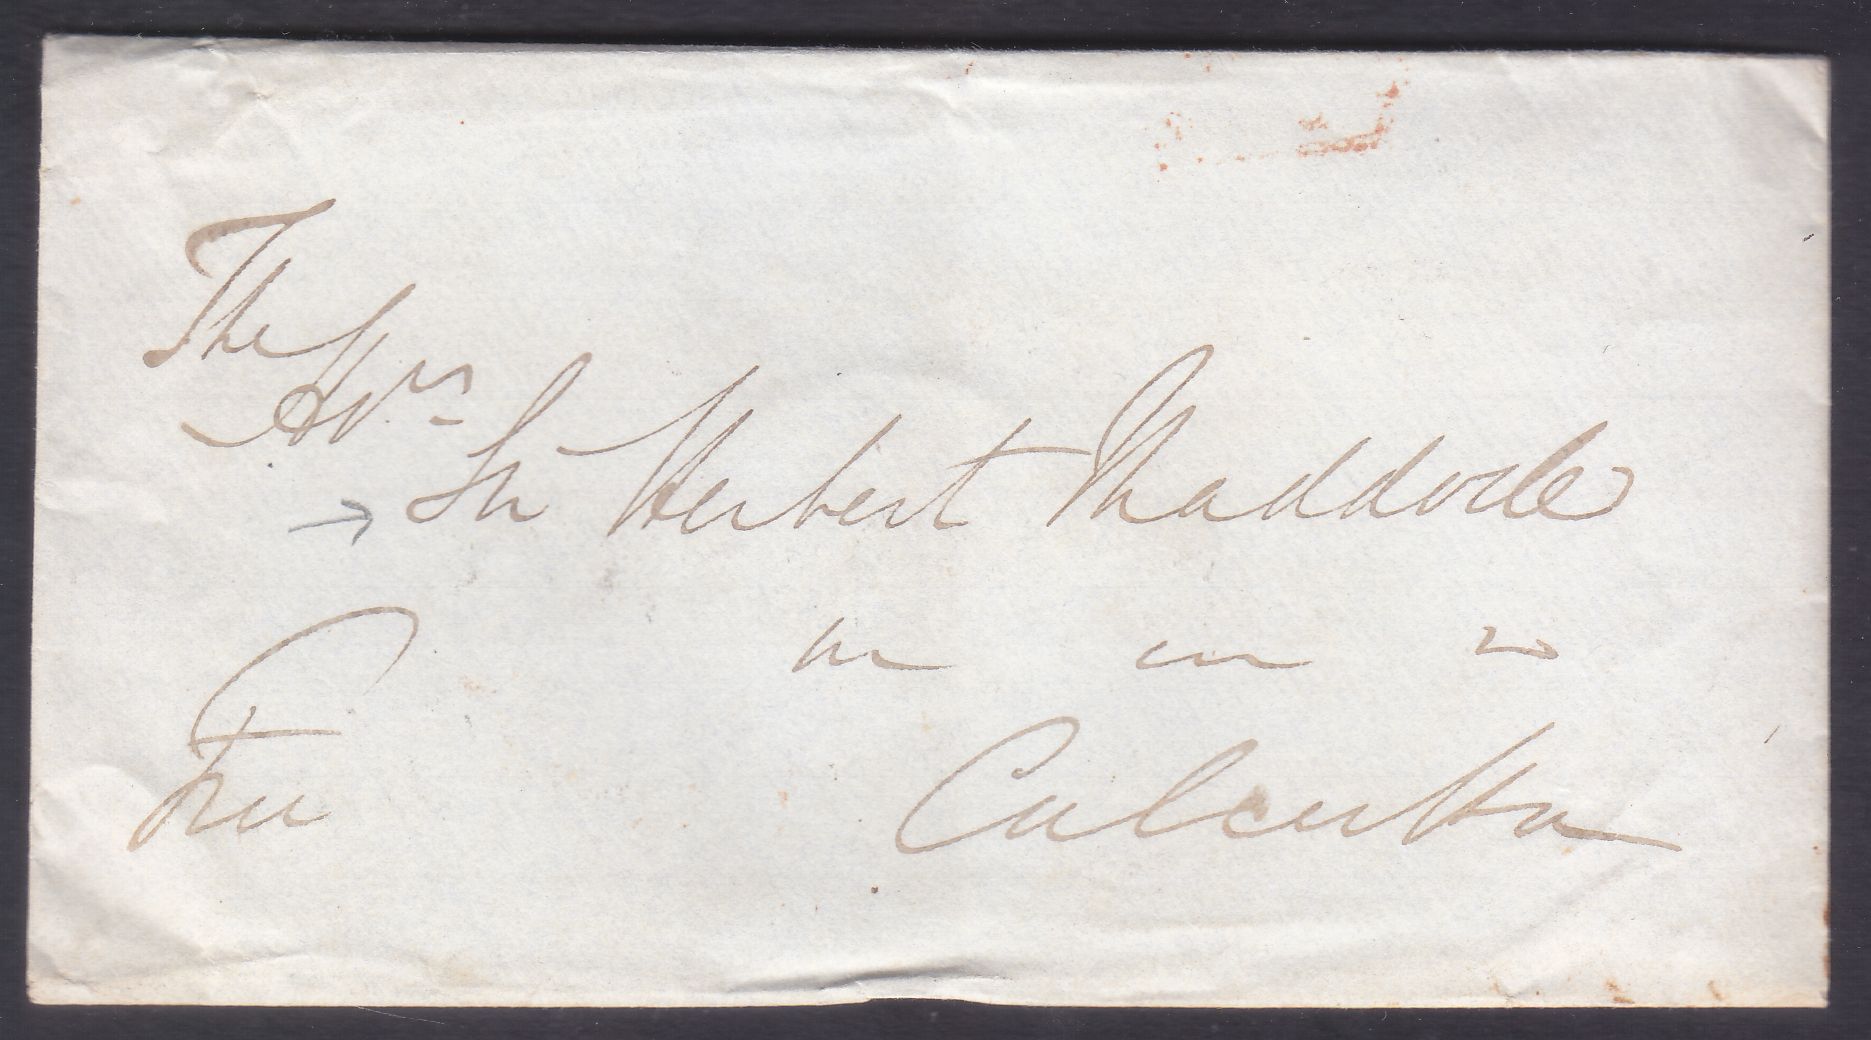 The
Hon
Sir Herbert Maddock
Calcutta
Free